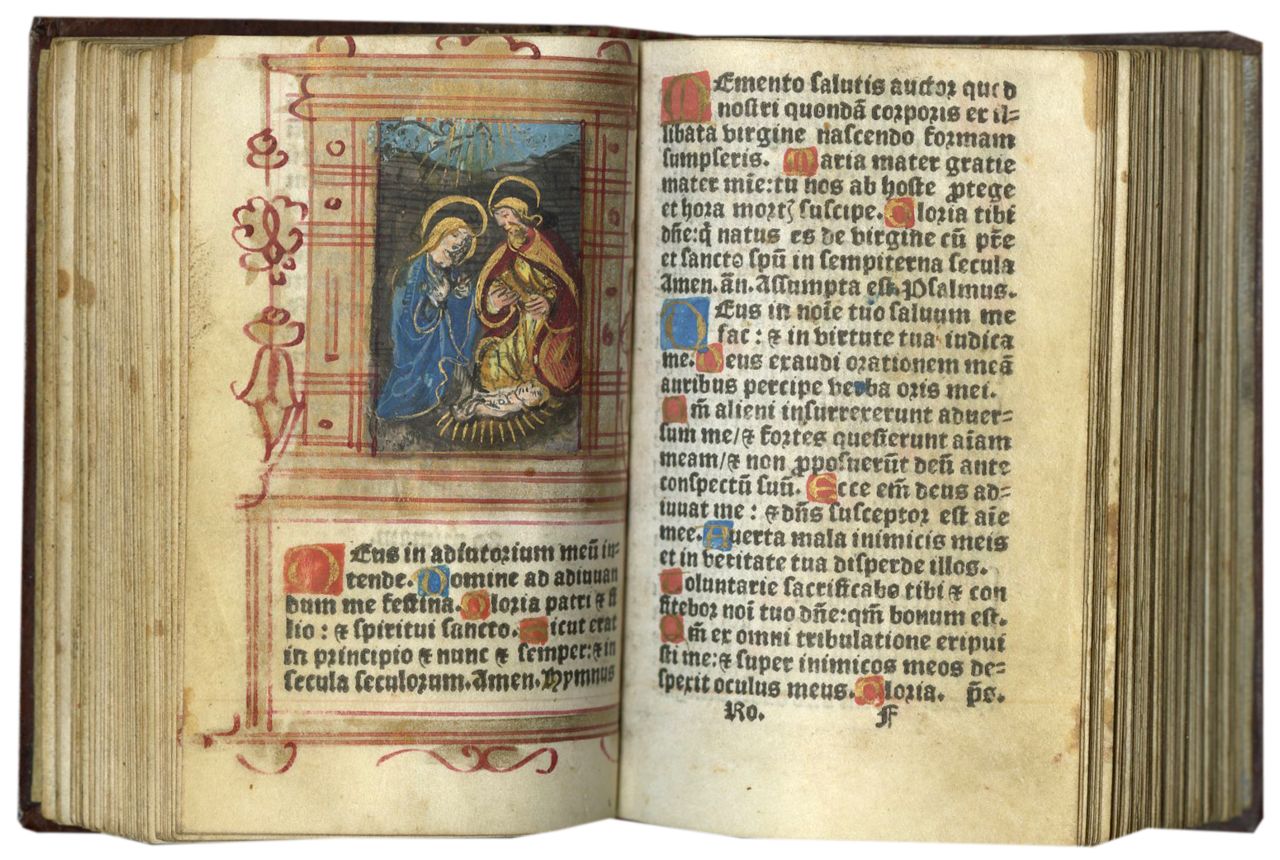 DEus in adiutorium meū in-
tende. Domine ad adiuuan
dum me festina. Gloria patri & fi
lio : & spiritui sancto. Sicut erat
in principio & nunc & semper: & in
secula seculorum. Amen. Hymnus
MEmento salutis auctor quod
nostri quondā corporis ex il-
libata virgine nascendo formam
sumpseris. Maria mater gratie
mater mīe: tu nos ab hoste ꝓtege
et hora mortꝭ suscipe. Gloria tibi
dn̄e: q̄ natus es de virgine cū pr̄e
et sancto spū in sempiterna secula
Amen. an̄. Assumpta est. Psalmus.
DEus in noīe tuo saluum me
fac : & in virtute tua iudica
me. Deus exaudi orationem meā
auribus percipe verba oris mei.
Qm̄ alieni insurrexerunt aduer-
sum me/ & fortes quesierunt aīam
meam/ & non ꝓposuerūt deū ante
conspectū suū. Ecce em̄ deus ad-
iuuat me : & dn̄s susceptor est aīe
mee. Auerta mala inimicis meis
et in veritate tua disperde illos.
Voluntarie sacrificabo tibi & con
fitebor noī tuo dn̄e: qm̄ bonum est.
Qm̄ ex omni tribulatione eripui
sti me: & super inimicos meos de-
spexit oculus meus. Gloria. p̄s.
Ro. F